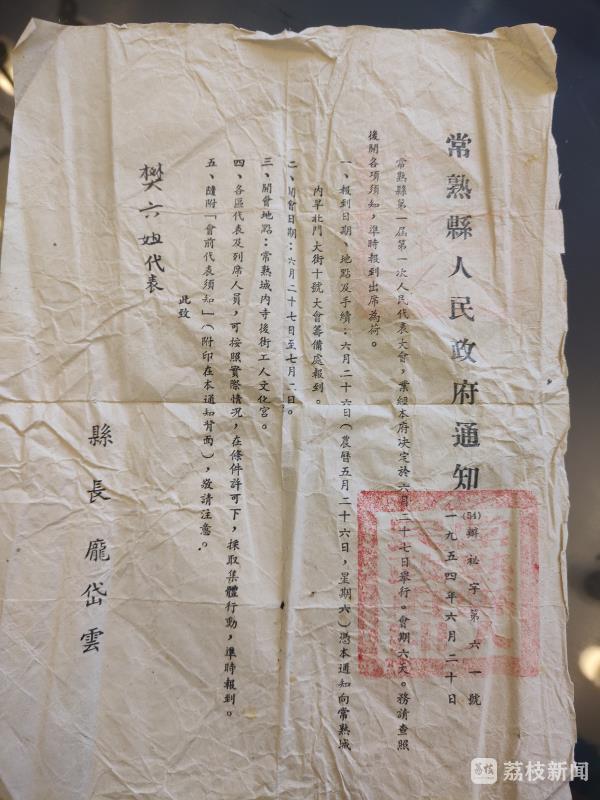 常熟縣人民政府通知
(54)辦祕字第六一號
一九五四年六月二十日
常熟縣第一屆第一次人民代表大會，業經本府决定於六月二十七日舉行。會期六天。務請查照
後開各項須知，準時報到出席為荷。
一、報到日期、地點及手續：六月二十六日（農曆五月二十六日，星期六）憑本通知向常熟城
內旱北門大街十號大會籌備處報到。
二、開會日期：六月二十七日至七月二日。
三、開會地點：常熟城內寺後街工人文化宮。
四、各區代表及列席人員，可按照實際情况，在條件許可下，採取集體行動，準時報到。
五、隨附「會前代表須知」（附印在本通知背面），敬請注意。
此致
樊六姐代表
縣長龐岱雲
荔枝
荔枝新闻